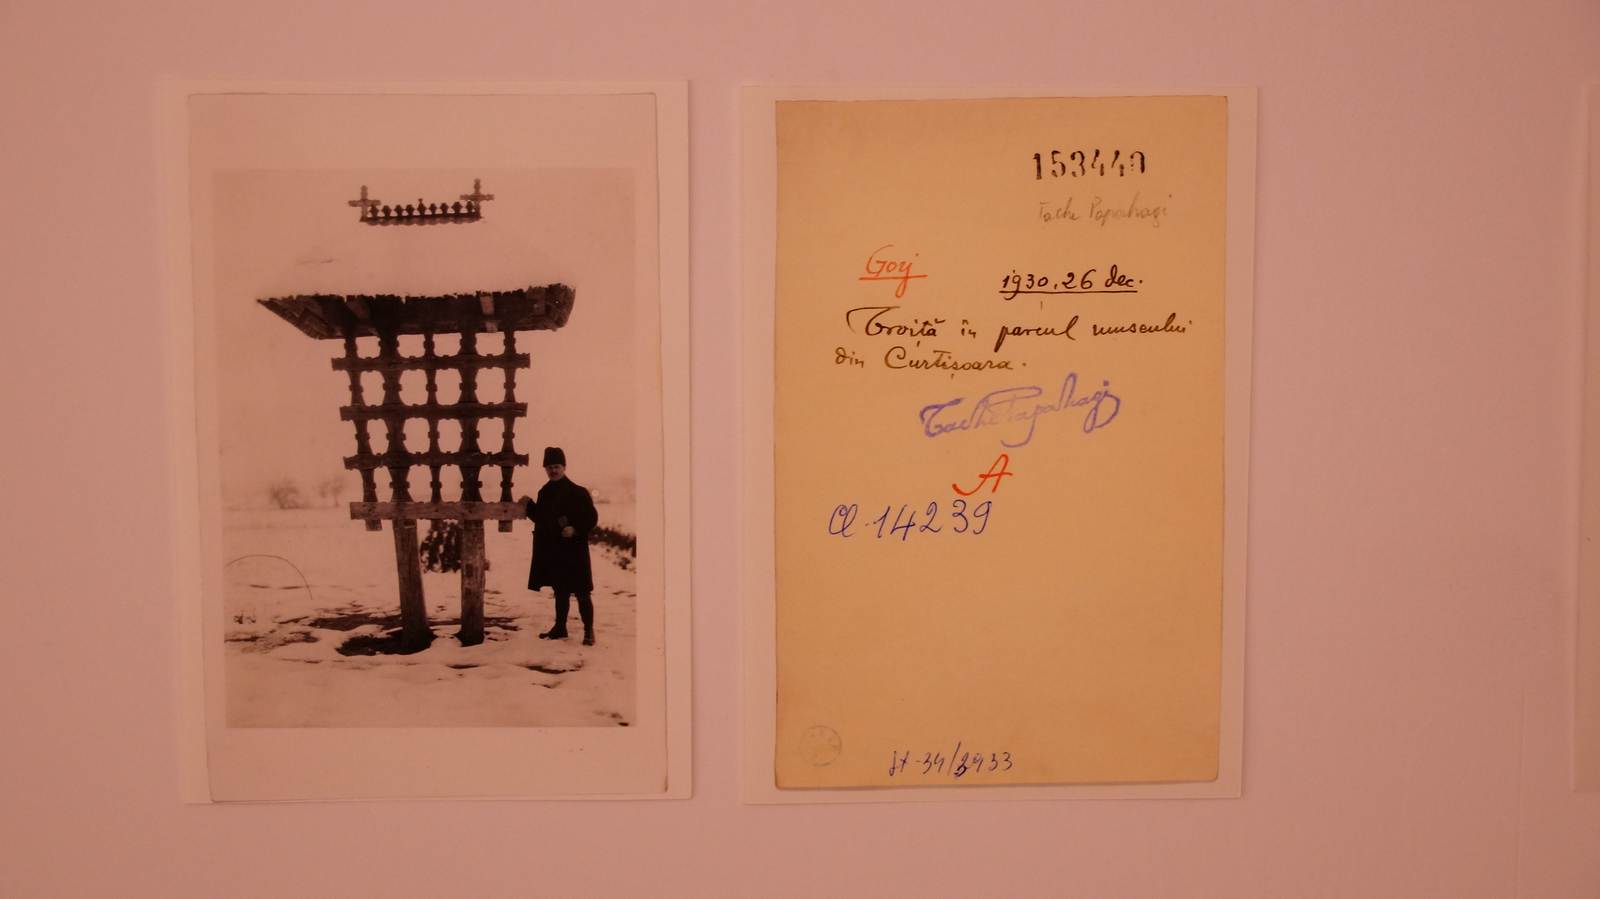 153440
Tache Papahagi
Gorj
1930, 26 dec.
Troiță în parcul muzeului
din Curtișoara.
Tache Papahagi
A
Cl. 14239